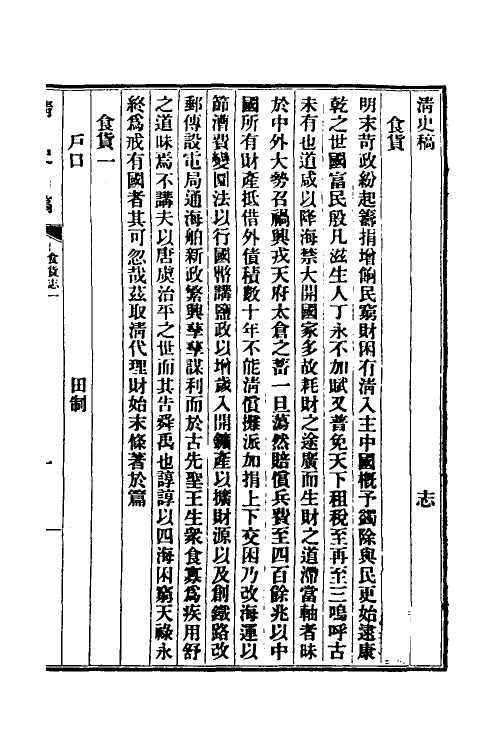 清史稿 志
食貨
明末苛政紛起籌捐增餉民窮財困有清入主中國概予蠲除與民更始逮康
乾之世國富民殷凡滋生人丁永不加賦又普免天下租稅至再至三嗚呼古
未有也道咸以降海禁大開國家多故耗財之途廣而生財之道滯當軸者昧
於中外大勢召禍興戎天府太倉之蓄一旦蕩然賠償兵費至四百餘兆以中
國所有財產抵借外債積數十年不能清償攤派加捐上下交困乃改海運以
節漕費變圜法以行國幣講鹽政以增歲入開鑛產以擴財源以及創鐵路改
郵傳設電局通海舶新政繁興孳孳謀利而於古先聖王生衆食寡爲疾用舒
之道昧焉不講夫以唐虞治平之世而其告舜禹也諄諄以四海困窮天祿永
終爲戒有國者其可忽哉茲取清代理財始末條著於篇
食貨一
戶口 田制
清史稿 食貨志一 一